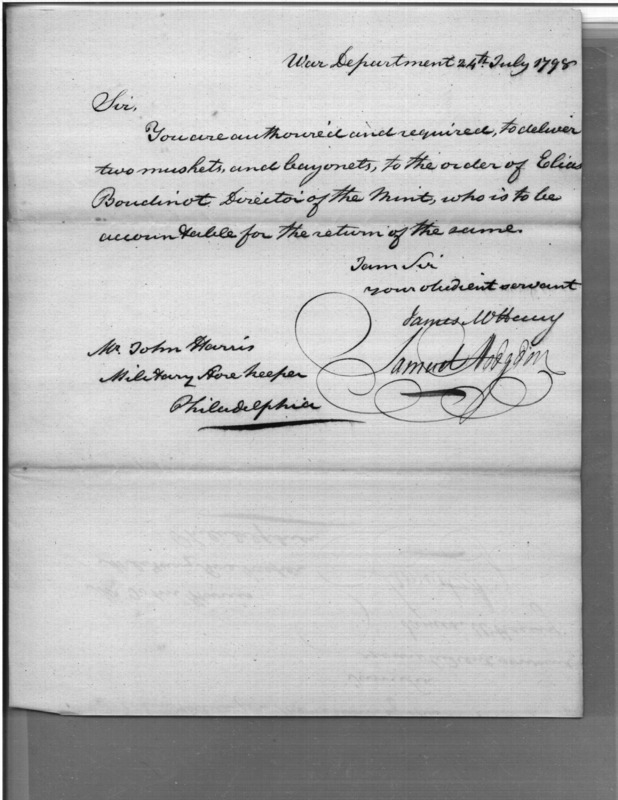 War Department 24th July 1798
Sir,
You are authoured and required, to deliver
two muskets, and bayonets, to the order of Elias
Boudinot Director of the Mint, who is to be
accountable for the return of the same.
I am Sir
your obedient servant
James McHenry
Samuel Hodgdon
Mr. John Harris
Military Store keeper
Philadelphia